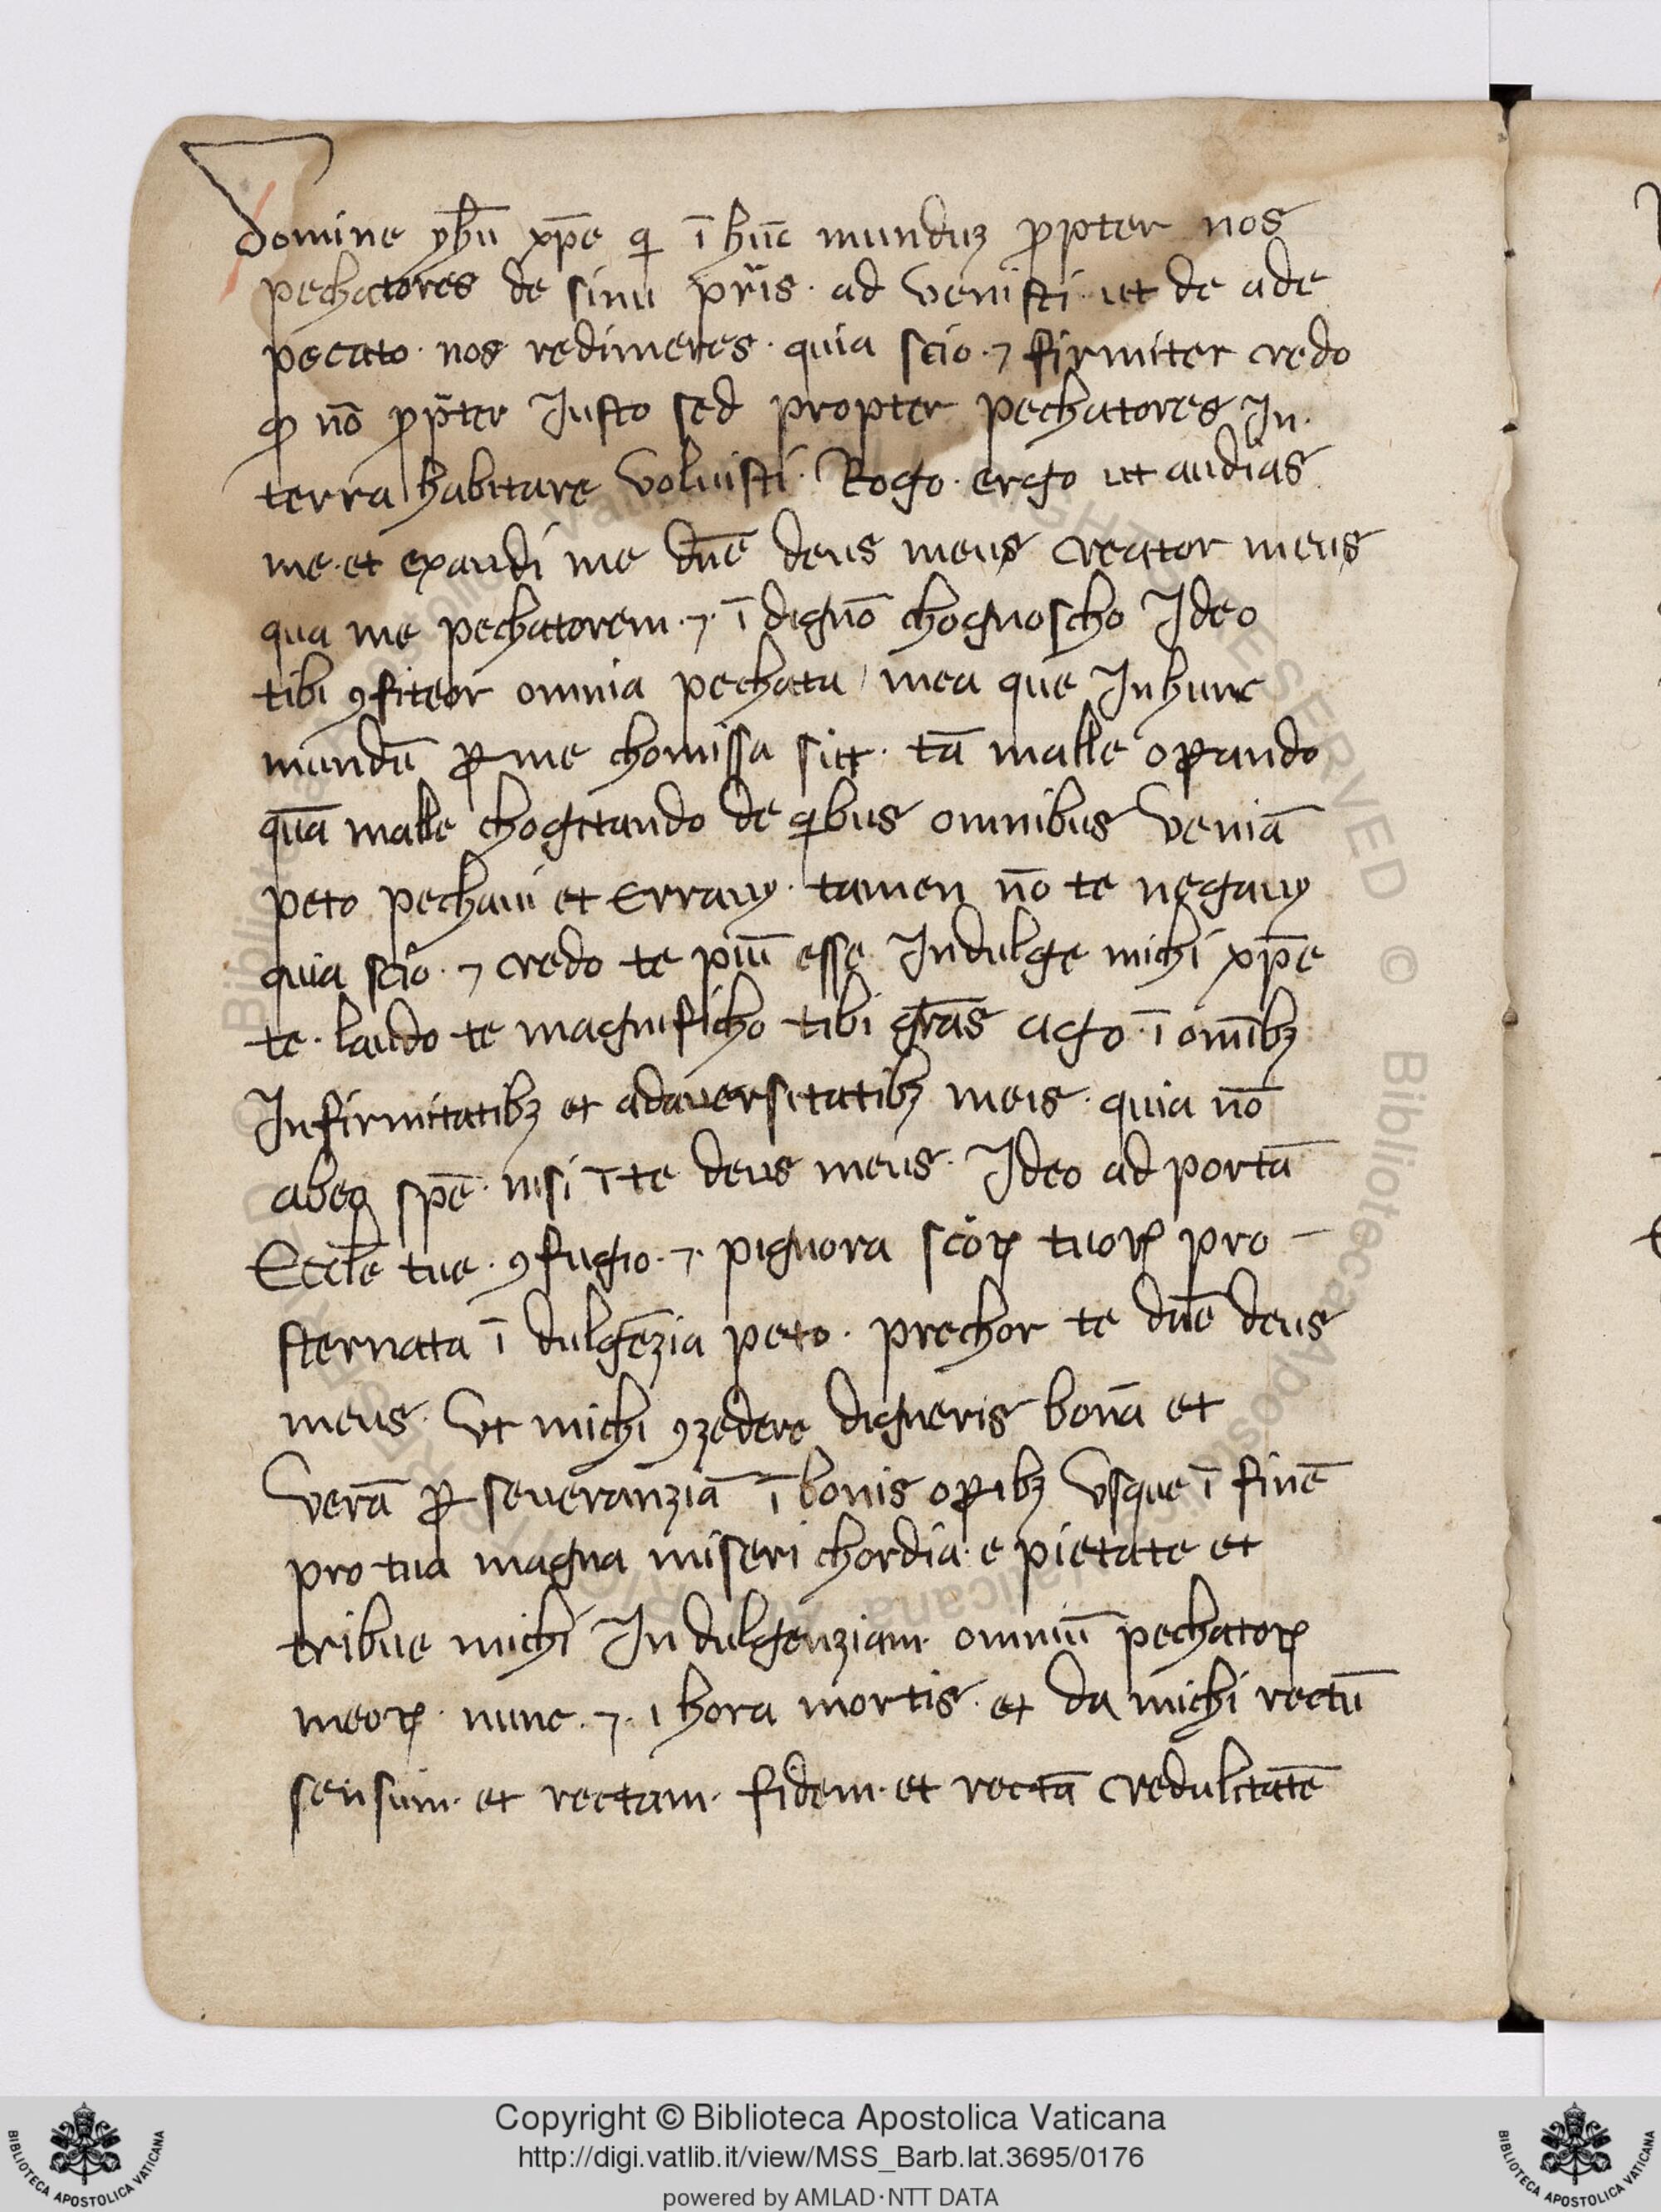 domine yhū xp̄e q ī hūc munduʒ ꝓpter nos
pechatores de sinu pr̄is · ad venisti · ut de ade
pecato · nos redimeres · quia scio · ⁊ firmiter credo
ꝙ nō ꝓp̄ter Iusto sed propter pechatores In ·
terra habitare voluisti · Rogo · ergo ut audias
me · et exaudi me dn̄e deus meus creator meus
qua me pechatorem · ⁊ · ī dignō chognoscho Ideo
tibi ꝯfiteor omnia pechata mea que In hunc
mundū ꝑ me chomissa sitt · tā malle oꝑando
quā malle chogitando de qbus omnibus veniā
peto pechaui et Errauy · tamen nō te negauy
quia scio · ⁊ credo te piū esse Indulge michi xp̄e
te · laudo te magnificho tibi gr̄as ago · ī om̄ibʒ
Infirmitatibʒ et adauersitatibʒ meis · quia nō
abeo spē · nisi ī te deus meus · Ideo ad portā
Eccl̄e tue · ꝯfugio · ⁊ · pignora sc̄oꝝ tuoꝝ pro –
sternata ī dulgēzia peto · prechor te dn̄e deus
meus · Vt michi ꝯzedere digneris bonā et
verā ꝑ seueranziā ī bonis oꝑibʒ vsque ī finē
pro tua magna miseri chordia · e pietate et
tribue michi In dulgenziam · omniū pechatoꝝ
meoꝝ · nunc · ⁊ · ı hora mortis · et da michi rectū
sensum · et rectam · fidem · et rectā credulitatē
Copyright © Biblioteca Apostolica Vaticana
http://digi.vatlib.it/view/MSS_Barb.lat.3695/0176
powered by AMLAD·NTT DATA
BIBLIOTECA APOSTOLICA VATICANA
BIBLIOTECA APOSTOLICA VATICANA